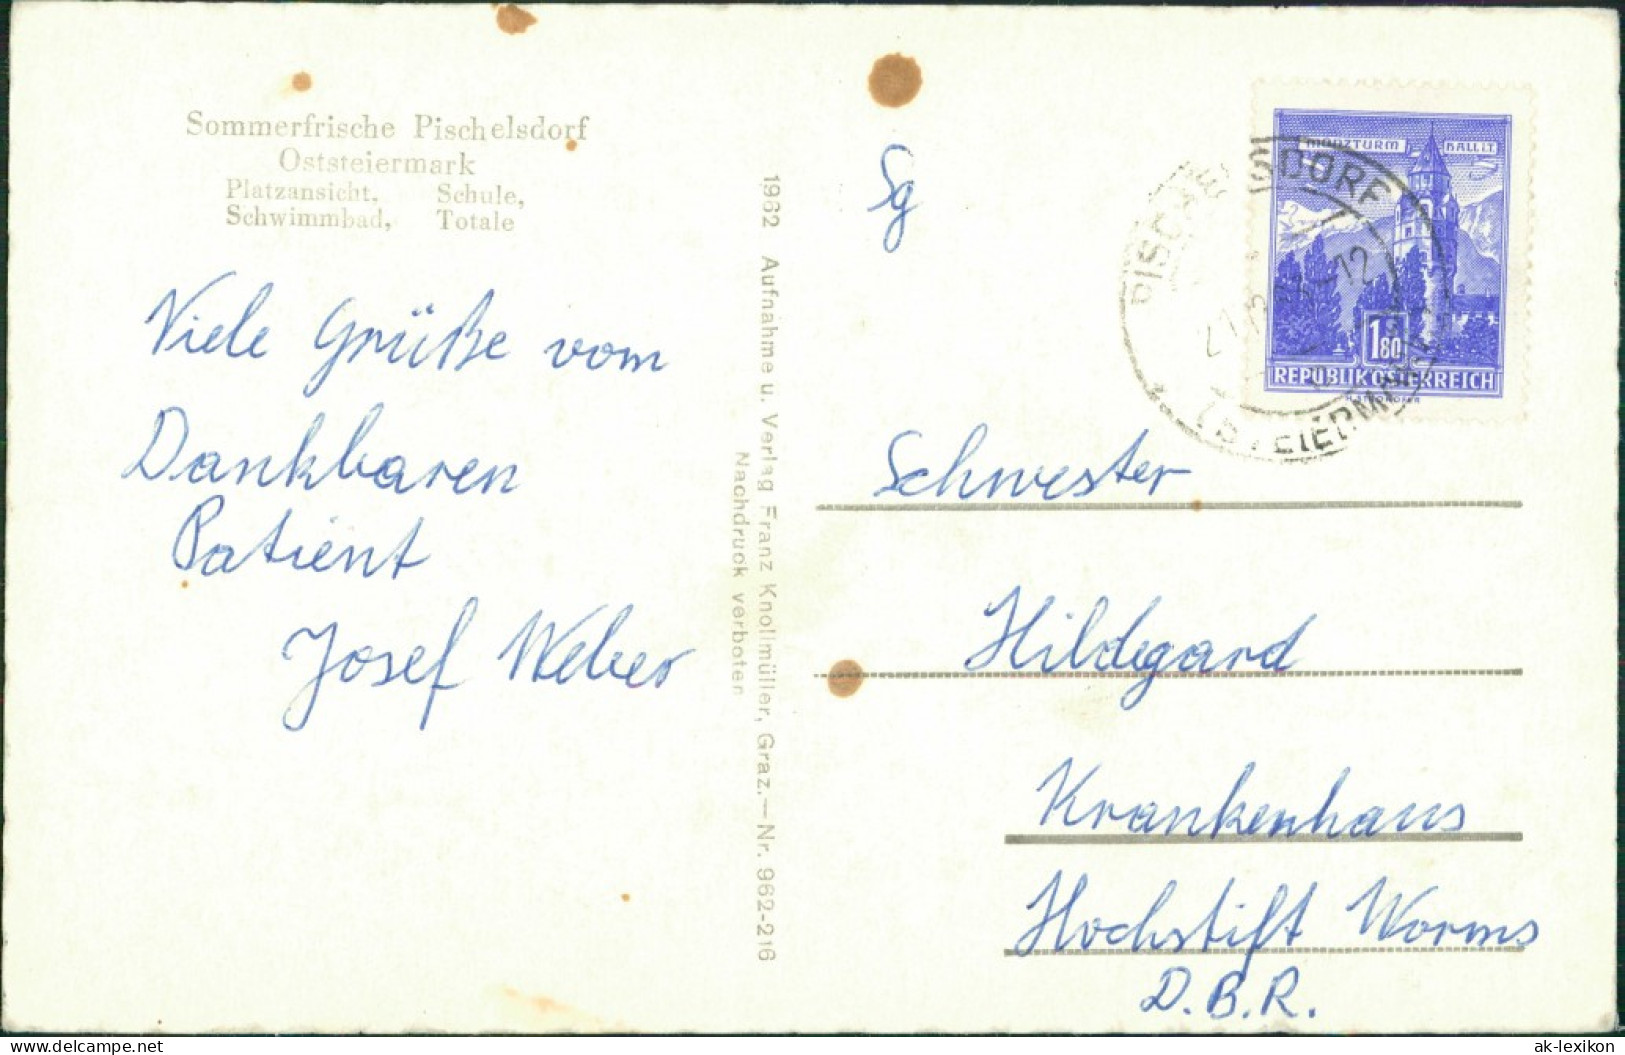 Sommerfrische Pischelsdorf
Oststeiermark
Platzansicht, Schule,
Schwimmbad, Totale
Viele Grüße vom
Dankbaren
Patient
Josef Weber
1962 Aufnahme u. Verlag Franz Knollmüller, Graz.—Nr. 962-216
Nachdruck verboten
Sg
MÜNZTURM HALL I.T.
1.80
REPUBLIK ÖSTERREICH
PISCHELSDORF
(STEIERMARK)
Schwester
Hildegard
Krankenhaus
Hochstift Worms
D.B.R.
www.delcampe.net
ak-lexikon